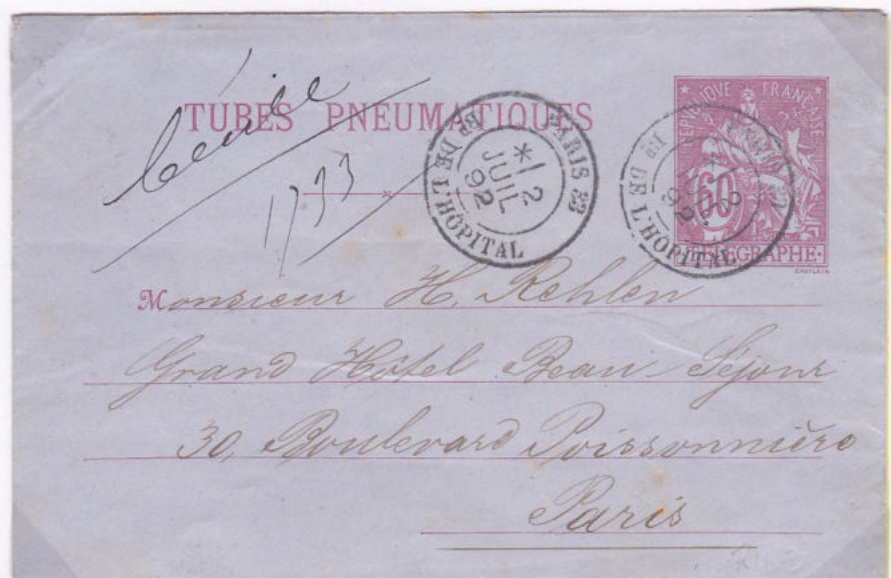 TUBES PNEUMATIQUES
1733
PARIS 23
* 2
JUIL
92
Bd DE L'HÔPITAL
REPUBLIQUE FRANÇAISE
60
TELEGRAPHE
CHAPLAIN
PARIS 23
2
92
Bd DE L'HÔPITAL
Monsieur H. Rehlen
Grand Hôtel Beau-Séjour
30, Boulevard Poissonnière
Paris